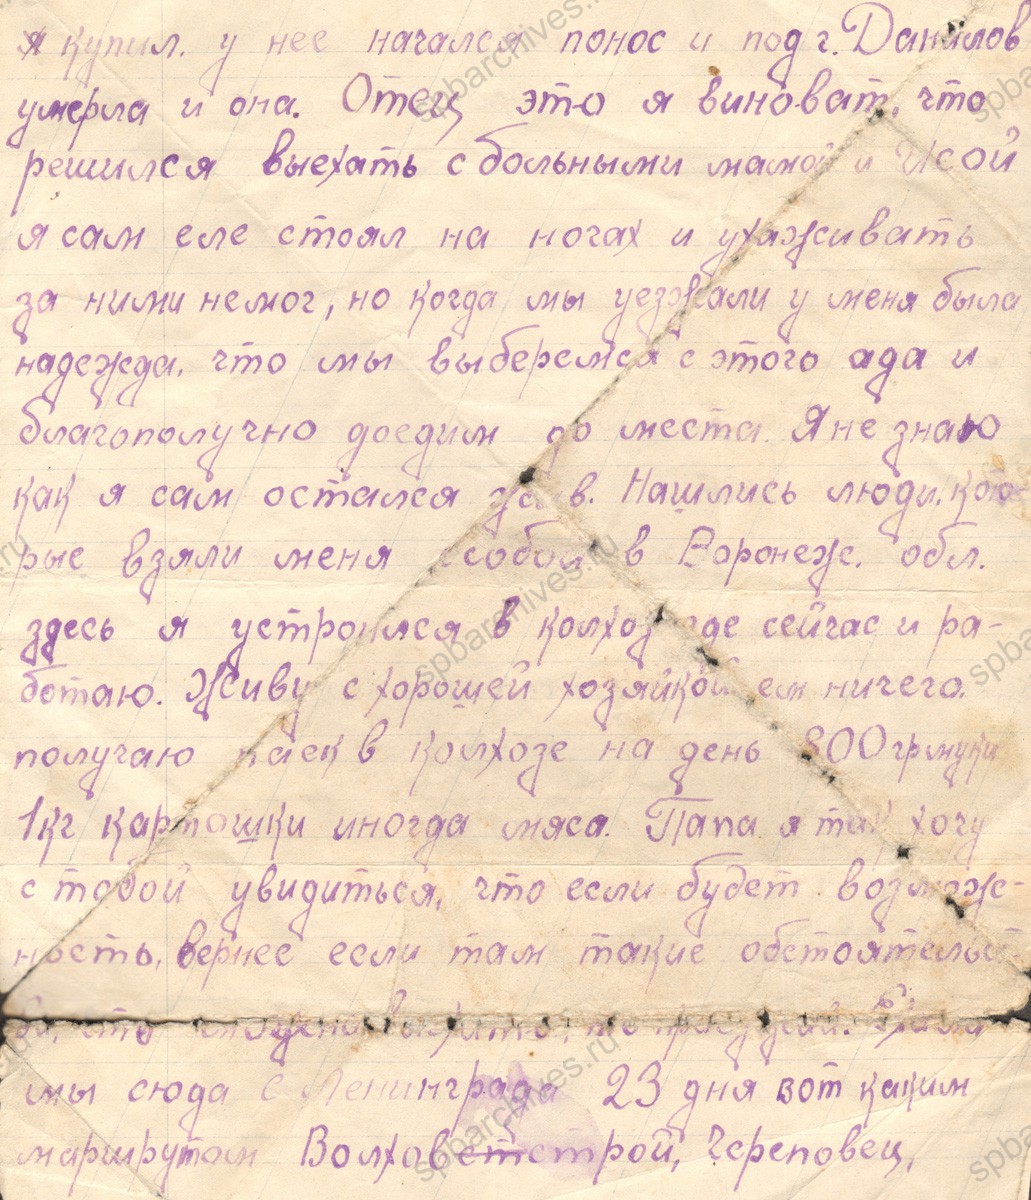 я купил. у нее начался понос и под г. Данилов
умерла и она. Отец это я виноват, что
решился выехать с больными мамой и Исой
я сам еле стоял на ногах и ухаживать
за ними немог, но когда мы уезжали у меня была
надежда, что мы выберемся с этого ада и
благополучно доедим до места. Я не знаю
как я сам остался жив. Нашлись люди, кото-
рые взяли меня с собой в Воронеж. обл.
здесь я устроился в колхоз где сейчас и ра-
ботаю. Живу с хорошей хозяйкой ем ничего.
получаю паек в колхозе на день 800 гр муки
1 кг картошки иногда мяса. Папа я так хочу
с тобой увидиться, что если будет возмож-
ность, вернее если там такие обстоятельст
ва, что можно то приезжай. Ехали
мы сюда с Ленинграда 23 дня вот каким
маршрутом Волховстстрой, Череповец,
spbarchives.ru